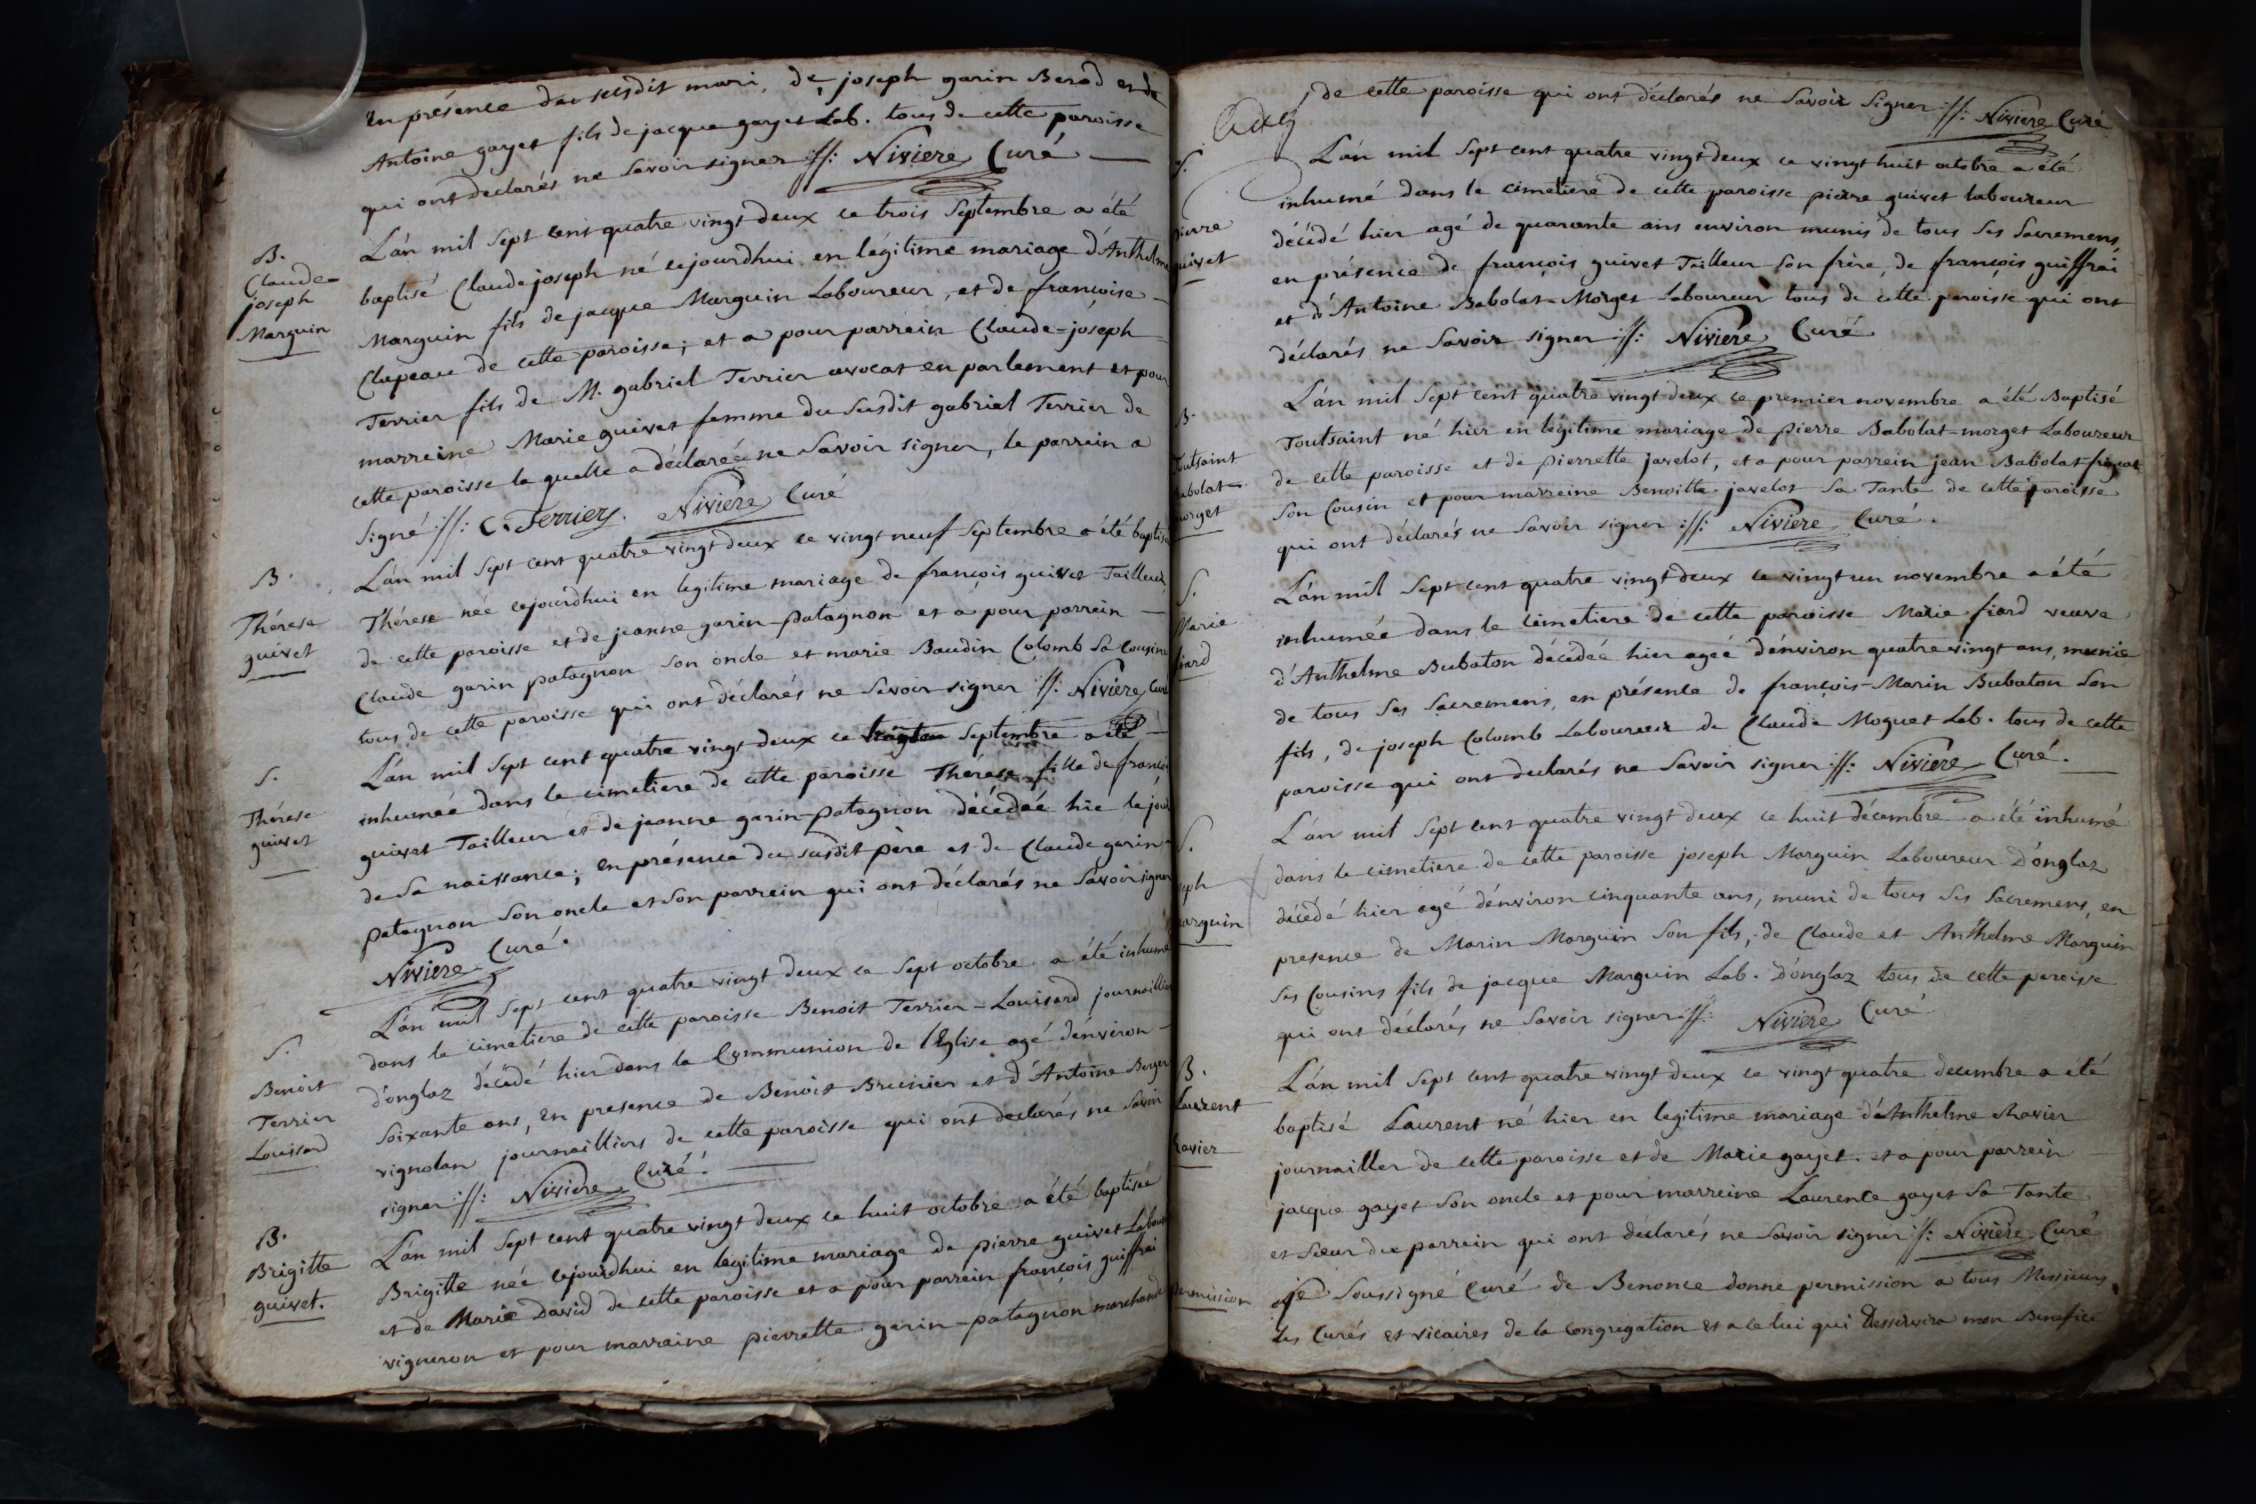 en présence du susdit mari, de joseph garin Berod et de
Antoine gayet fils de jacque gayet Lab. tous de cette paroisse
qui ont declarés ne Savoir signer ://: Niviere Curé
B.
Claude-
joseph
Marguin
L'an mil Sept cent quatre vingt deux ce trois Septembre a été
baptisé Claude joseph né cejourdhui en légitime mariage d'Anthelme
Marguin fils de jacque Marguin Laboureur, et de françoise
Clapeau de cette paroisse; et a pour parrein Claude-joseph
Terrier fils de M. gabriel Terrier avocat en parlement et pour
marreine Marie guivet femme du Susdit gabriel Terrier de
cette paroisse la quelle a déclarée ne Savoir signer, le parrein a
signé ://: C. Terrier. Niviere Curé
B.
Thérese
guivet
L'an mil Sept cent quatre vingt deux ce vingt neuf Septembre a été baptisée
Thérese née cejourdhui en legitime mariage de françois guivet Tailleur
de cette paroisse et de jeanne garin-patagnon et a pour parrein
Claude garin patagnon son oncle et marie Baudin Colomb Sa Cousine
tous de cette paroisse qui ont déclarés ne Savoir signer ://: Niviere Curé
S.
Thérese
guivet
L'an mil Sept cent quatre vingt deux ce Septembre a été
inhumée dans le cimetiere de cette paroisse Thérese fille de françois
guivet Tailleur et de jeanne garin-patagnon décédée hie le jour
de Sa naissance; en présence du susdit père et de Claude garin-
patagnon Son oncle et Son parrein qui ont déclarés ne Savoir signer
Niviere Curé.
S.
Benoit
Terrier
Louisard
L'an mil Sept cent quatre vingt deux ce Sept octobre a été inhumé
dans le cimetiere de cette paroisse Benoit Terrier-Louisard journaillier
d'onglaz décédé hier dans la Communion de l'Eglise agé d'environ
Soixante ans, en presence de Benoit Brunier et d'Antoine Berger
vignolan journailliers de cette paroisse qui ont declarés ne Savoir
signer ://: Niviere Curé.
B.
Brigitte
guivet.
L'an mil Sept cent quatre vingt deux ce huit octobre a été baptisée
Brigitte née cejourdhui en legitime mariage de pierre guivet Labour
et de Marie David de cette paroisse et a pour parrein françois guiffrai
vigneron et pour marraine pierrette garin-patagnon marchande
de cette paroisse qui ont déclarés ne Savoir Signer ://: Niviere Curé
S.
pierre
guivet
L'an mil Sept cent quatre vingt deux ce vingt huit octobre a été
inhumé dans le cimetiere de cette paroisse pierre guivet laboureur
décédé hier agé de quarante ans environ munis de tous Ses Sacremens,
en présence de françois guivet Tailleur Son frère, de françois guiffrai
et d'Antoine Babolat-Morget Laboureur tous de cette paroisse qui ont
déclarés ne Savoir signer ://: Niviere Curé
B.
Toutsaint
Babolat-
morget
L'an mil Sept cent quatre vingt deux ce premier novembre a été Baptisé
Toutsaint né hier en légitime mariage de pierre Babolat-morget Laboureur
de cette paroisse et de pierrette javelot, et a pour parrein jean Babolat
Son Cousin et pour marreine Benoitte javelot Sa Tante de cette paroisse
qui ont déclarés ne Savoir signer ://: Niviere Curé.
S.
Marie
fiard
L'an mil Sept cent quatre vingt deux ce vingt un novembre a été
inhumée dans le cimetiere de cette paroisse Marie fiard veuve
d'Anthelme Bubaton décédée hier agée d'environ quatre vingt ans, munie
de tous Ses Sacremens, en présence de françois-Marin Bubaton Son
fils, de joseph Colomb Laboureur de Claude Moguet Lab. tous de cette
paroisse qui ont declarés ne Savoir signer ://: Niviere Curé.
S.
joseph
Marguin
L'an mil Sept cent quatre vingt deux ce huit décembre a été inhumé
dans le cimetiere de cette paroisse joseph Marguin Laboureur D'onglaz
décédé hier agé d'environ cinquante ans, muni de tous Ses Sacremens, en
presence de Marin Marguin Son fils, de Claude et Anthelme Marguin
Ses Cousins fils de jacque Marguin Lab. D'onglaz tous de cette paroisse
qui ont déclarés ne Savoir signer ://: Niviere Curé
B.
Laurent
Ravier
L'an mil Sept cent quatre vingt deux ce vingt quatre decembre a été
baptisé Laurent né hier en legitime mariage d'Anthelme Ravier
journailler de cette paroisse et de Marie gayet. et a pour parrein
jacque gayet Son oncle et pour marreine Laurence gayet Sa Tante
et Sœur du parrein qui ont declarés ne Savoir signer ://: Niviere Curé
permission
je Soussigné Curé de Benonce donne permission a tous Messieurs
Les Curés et vicaires de la congregation et a celui qui Desservira mon Benefice